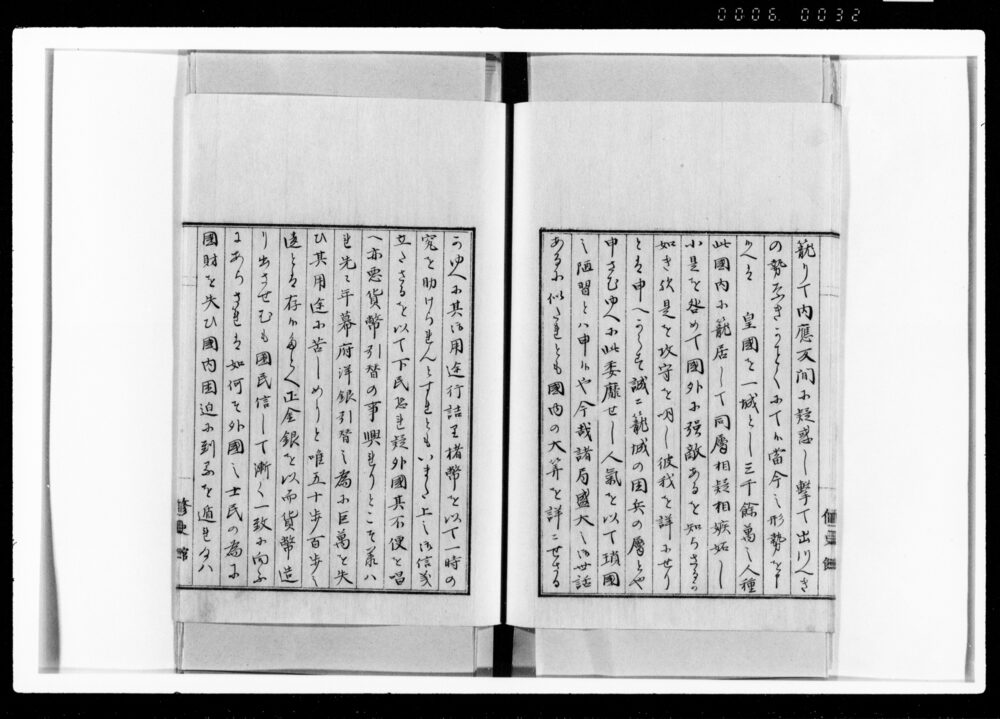 0006 0032
籠りて内應反間に疑惑し撃て出つへき
の勢なきかことくにて候當今之形勢を申
候へは　皇國を一城とし三千餘萬之人種
此國内に籠居して同層相疑相嫉妬し
小是を咎めて國外に強敵あるを知らさるか
如き欤是を攻守を明し彼我を詳にせり
とは申へからす誠に籠城の困兵の層とや
申さむゆへに此委靡せし人氣を以て瑣國
之陋習とは申候や今哉諸局盛大之御世話
あるに似たれとも國内の大算を詳にせさる
かゆへに其御用途行詰り楮幣を以て一時の
究を助けられんとすれともいまた上之御信義
立たさるを以て下民恐れ疑外國其不便を唱
へ亦悪貨幣引替の事興れりとこそ承ハ
れ先之年幕府洋銀引替之為に巨萬を失
ひ其用途に苦しめりと唯五十歩百歩之
違とは存候
正金銀を以而貨幣
造
り出させむも國民信して漸く一致に向ふ
にあらされは如何そ外國之士民の為に
國財を失ひ國内困迫に到るを遁れ
修史館